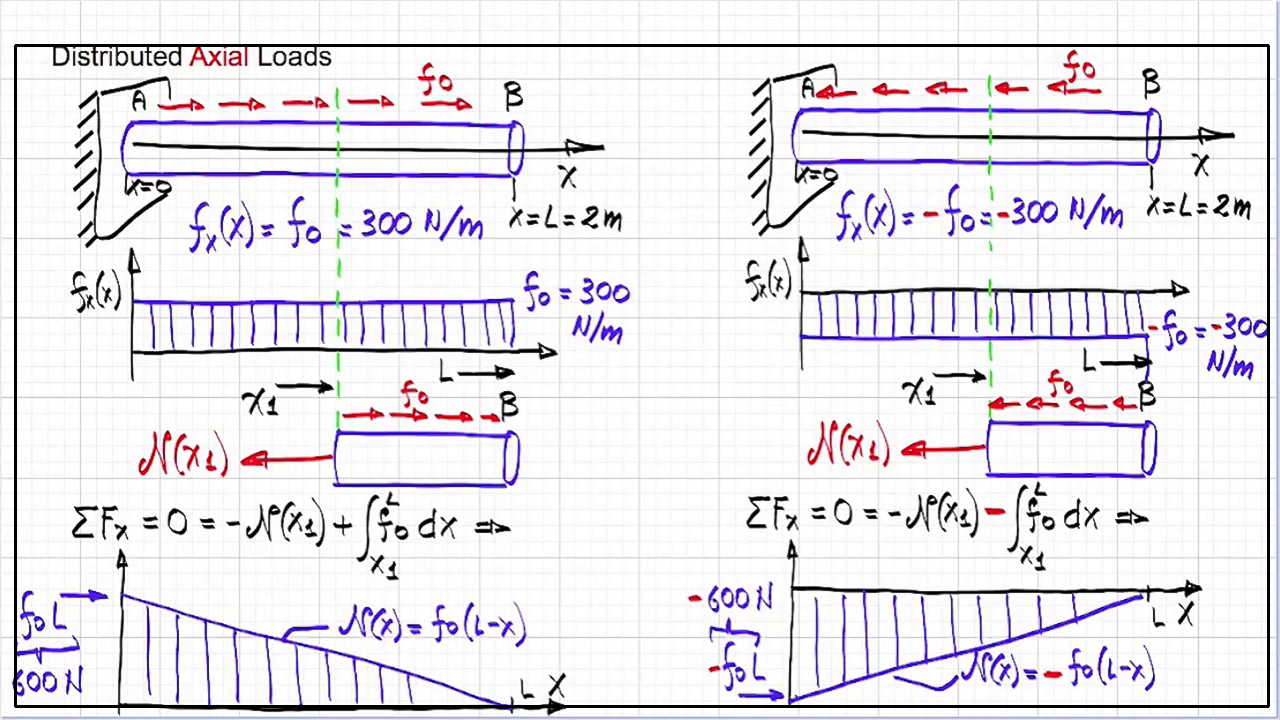 Distributed Axial Loads
A f0 B
x=0
x
fx(x) = f0 = 300 N/m
x=L=2m
fx(x)
f0 = 300
N/m
L
x1
f0 B
N(x1)
ΣFx = 0 = -N(x1) + ∫x1^L f0 dx ⇒
f0L
600N
N(x) = f0(L-x)
L x
A f0 B
x=0
x
fx(x) = -f0 = -300 N/m
x=L=2m
fx(x)
-f0 = -300
N/m
L
x1
f0 B
N(x1)
ΣFx = 0 = -N(x1) - ∫x1^L f0 dx ⇒
-600N
-f0L
L x
N(x) = -f0(L-x)